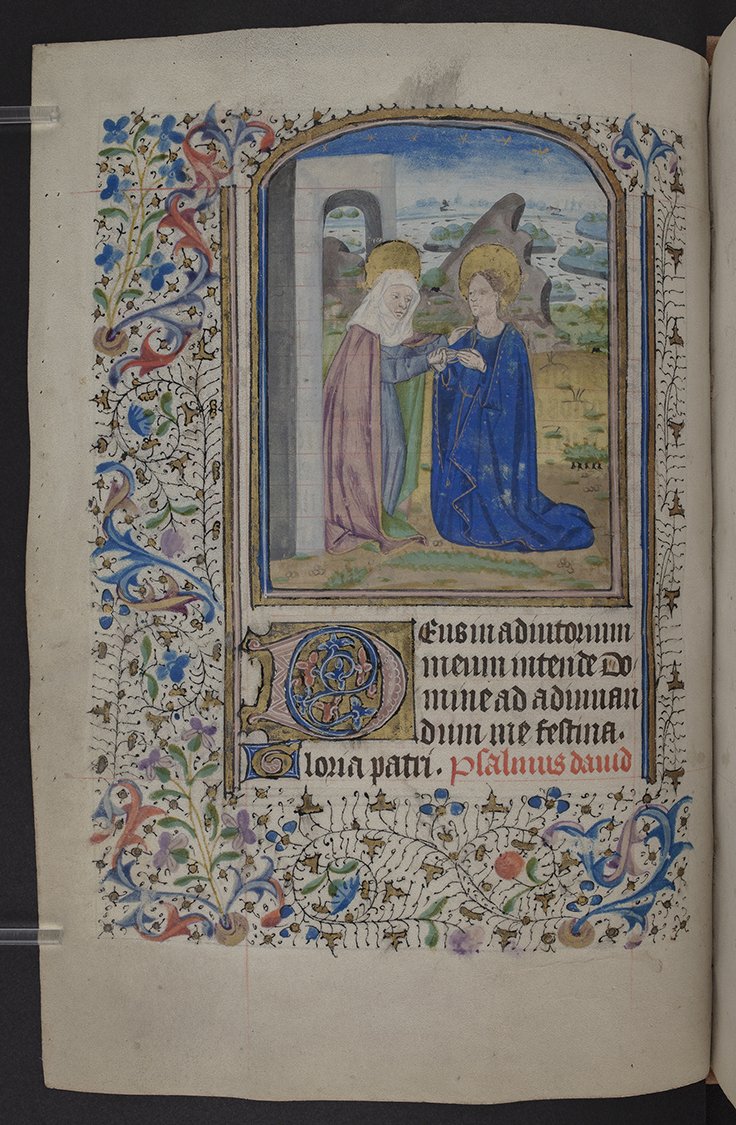 Deus in adiutorium
meum intende Do
mine ad adiuuan
dum me festina.
Gloria patri. Psalmus dauid